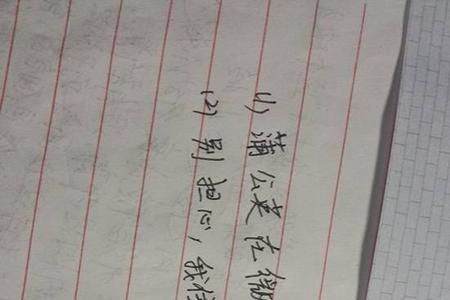 (1) 蒲公英在微
(2) 别担心,我